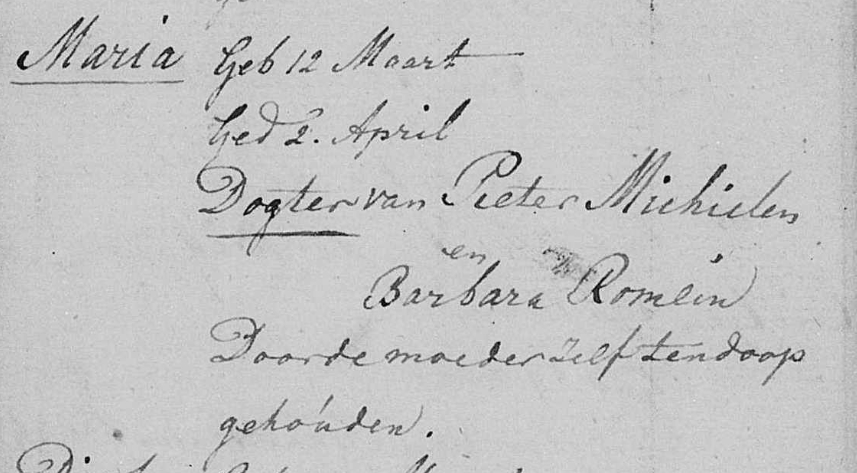 Maria Geb 12 Maart
Ged 2. April
Dogter van Pieter Michielen
en
Barbara Romein
Door de moeder zelf ten doop
gehouden.